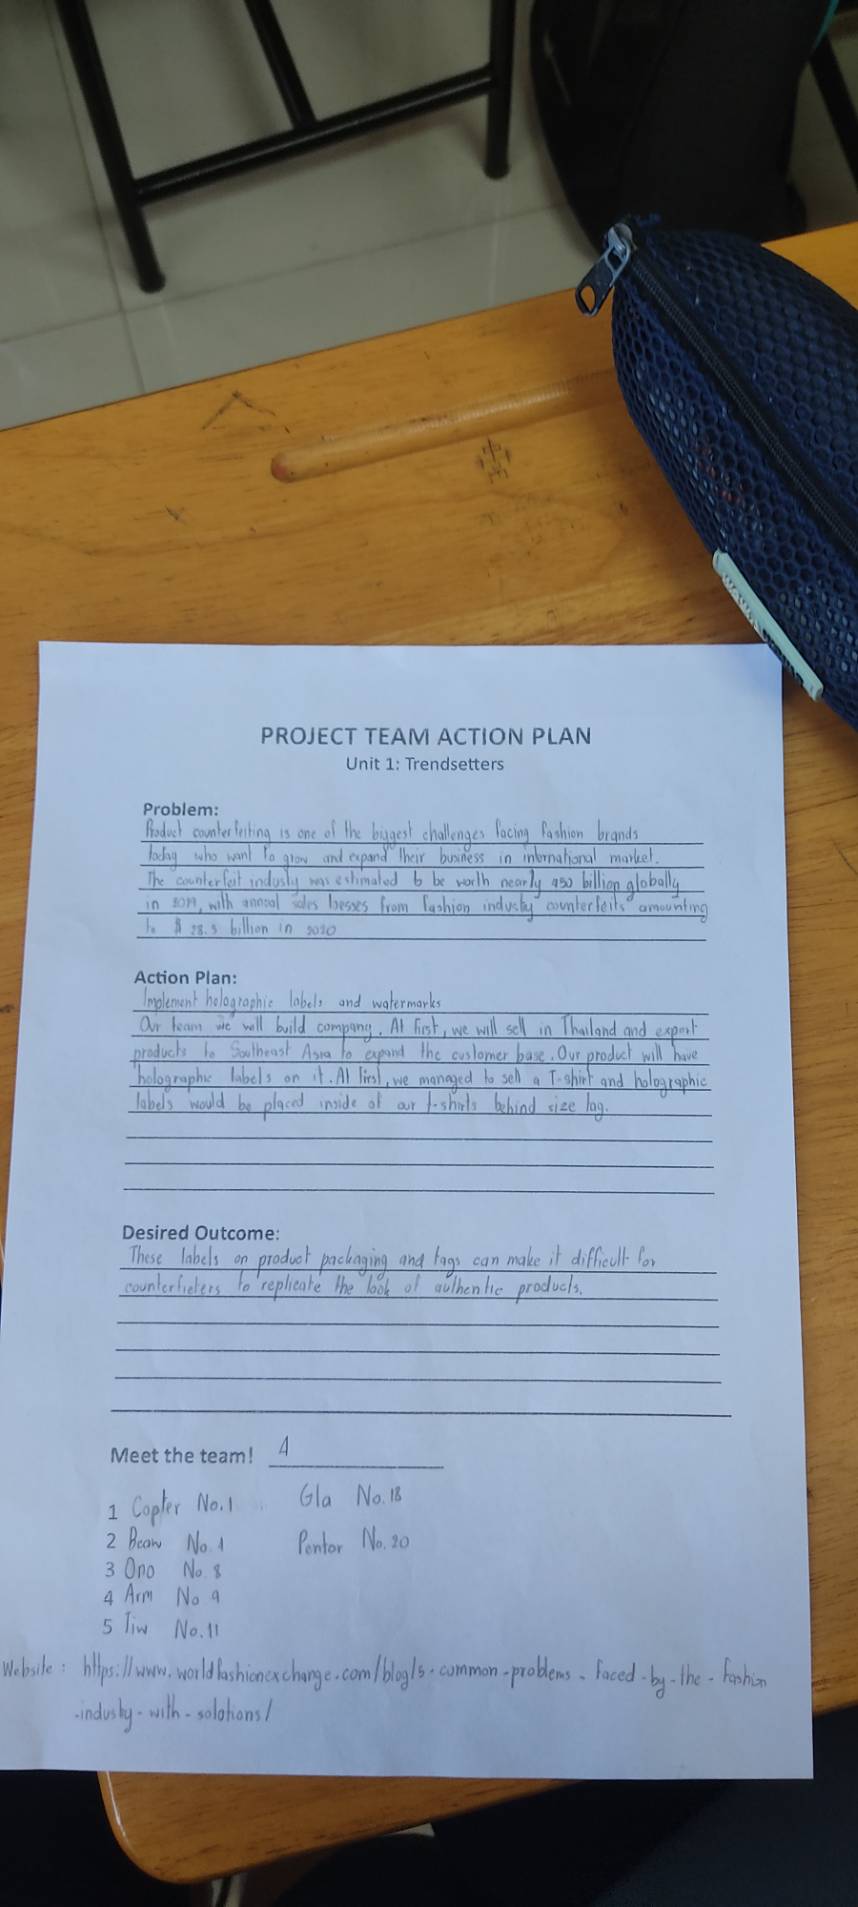 PROJECT TEAM ACTION PLAN
Unit 1: Trendsetters
Problem:
Product counterfeiting is one of the biggest challenges facing fashion brands
today who want to grow and expand their business in international market.
The counterfeit industy was estimated to be worth nearly 450 billion globally
in 2019, with annual sales losses from fashion industry counterfeits amounting
to $ 28.5 billion in 2020
Action Plan:
Implement holographic labels and watermarks
Our team we will build company. At first, we will sell in Thailand and export
products to Southeast Asia to expand the customer base. Our product will have
holographic labels on it. At first, we managed to sell a T-shirt and holographic
labels would be placed inside of our t-shirts behind size tag.
Desired Outcome:
These labels on product packaging and tags can make it difficult for
counterfieters to replicate the look of authentic products.
Meet the team! 4
1 Copter No.1 Gla No. 18
2 No. 1 Pontor No. 20
3 Ono No. 8
4 Arm No 9
5 Tiw No.11
Website: https://www.worldfashionexchange.com/blog/5-common-problems-faced-by-the-fashion
-industry-with-solutions/